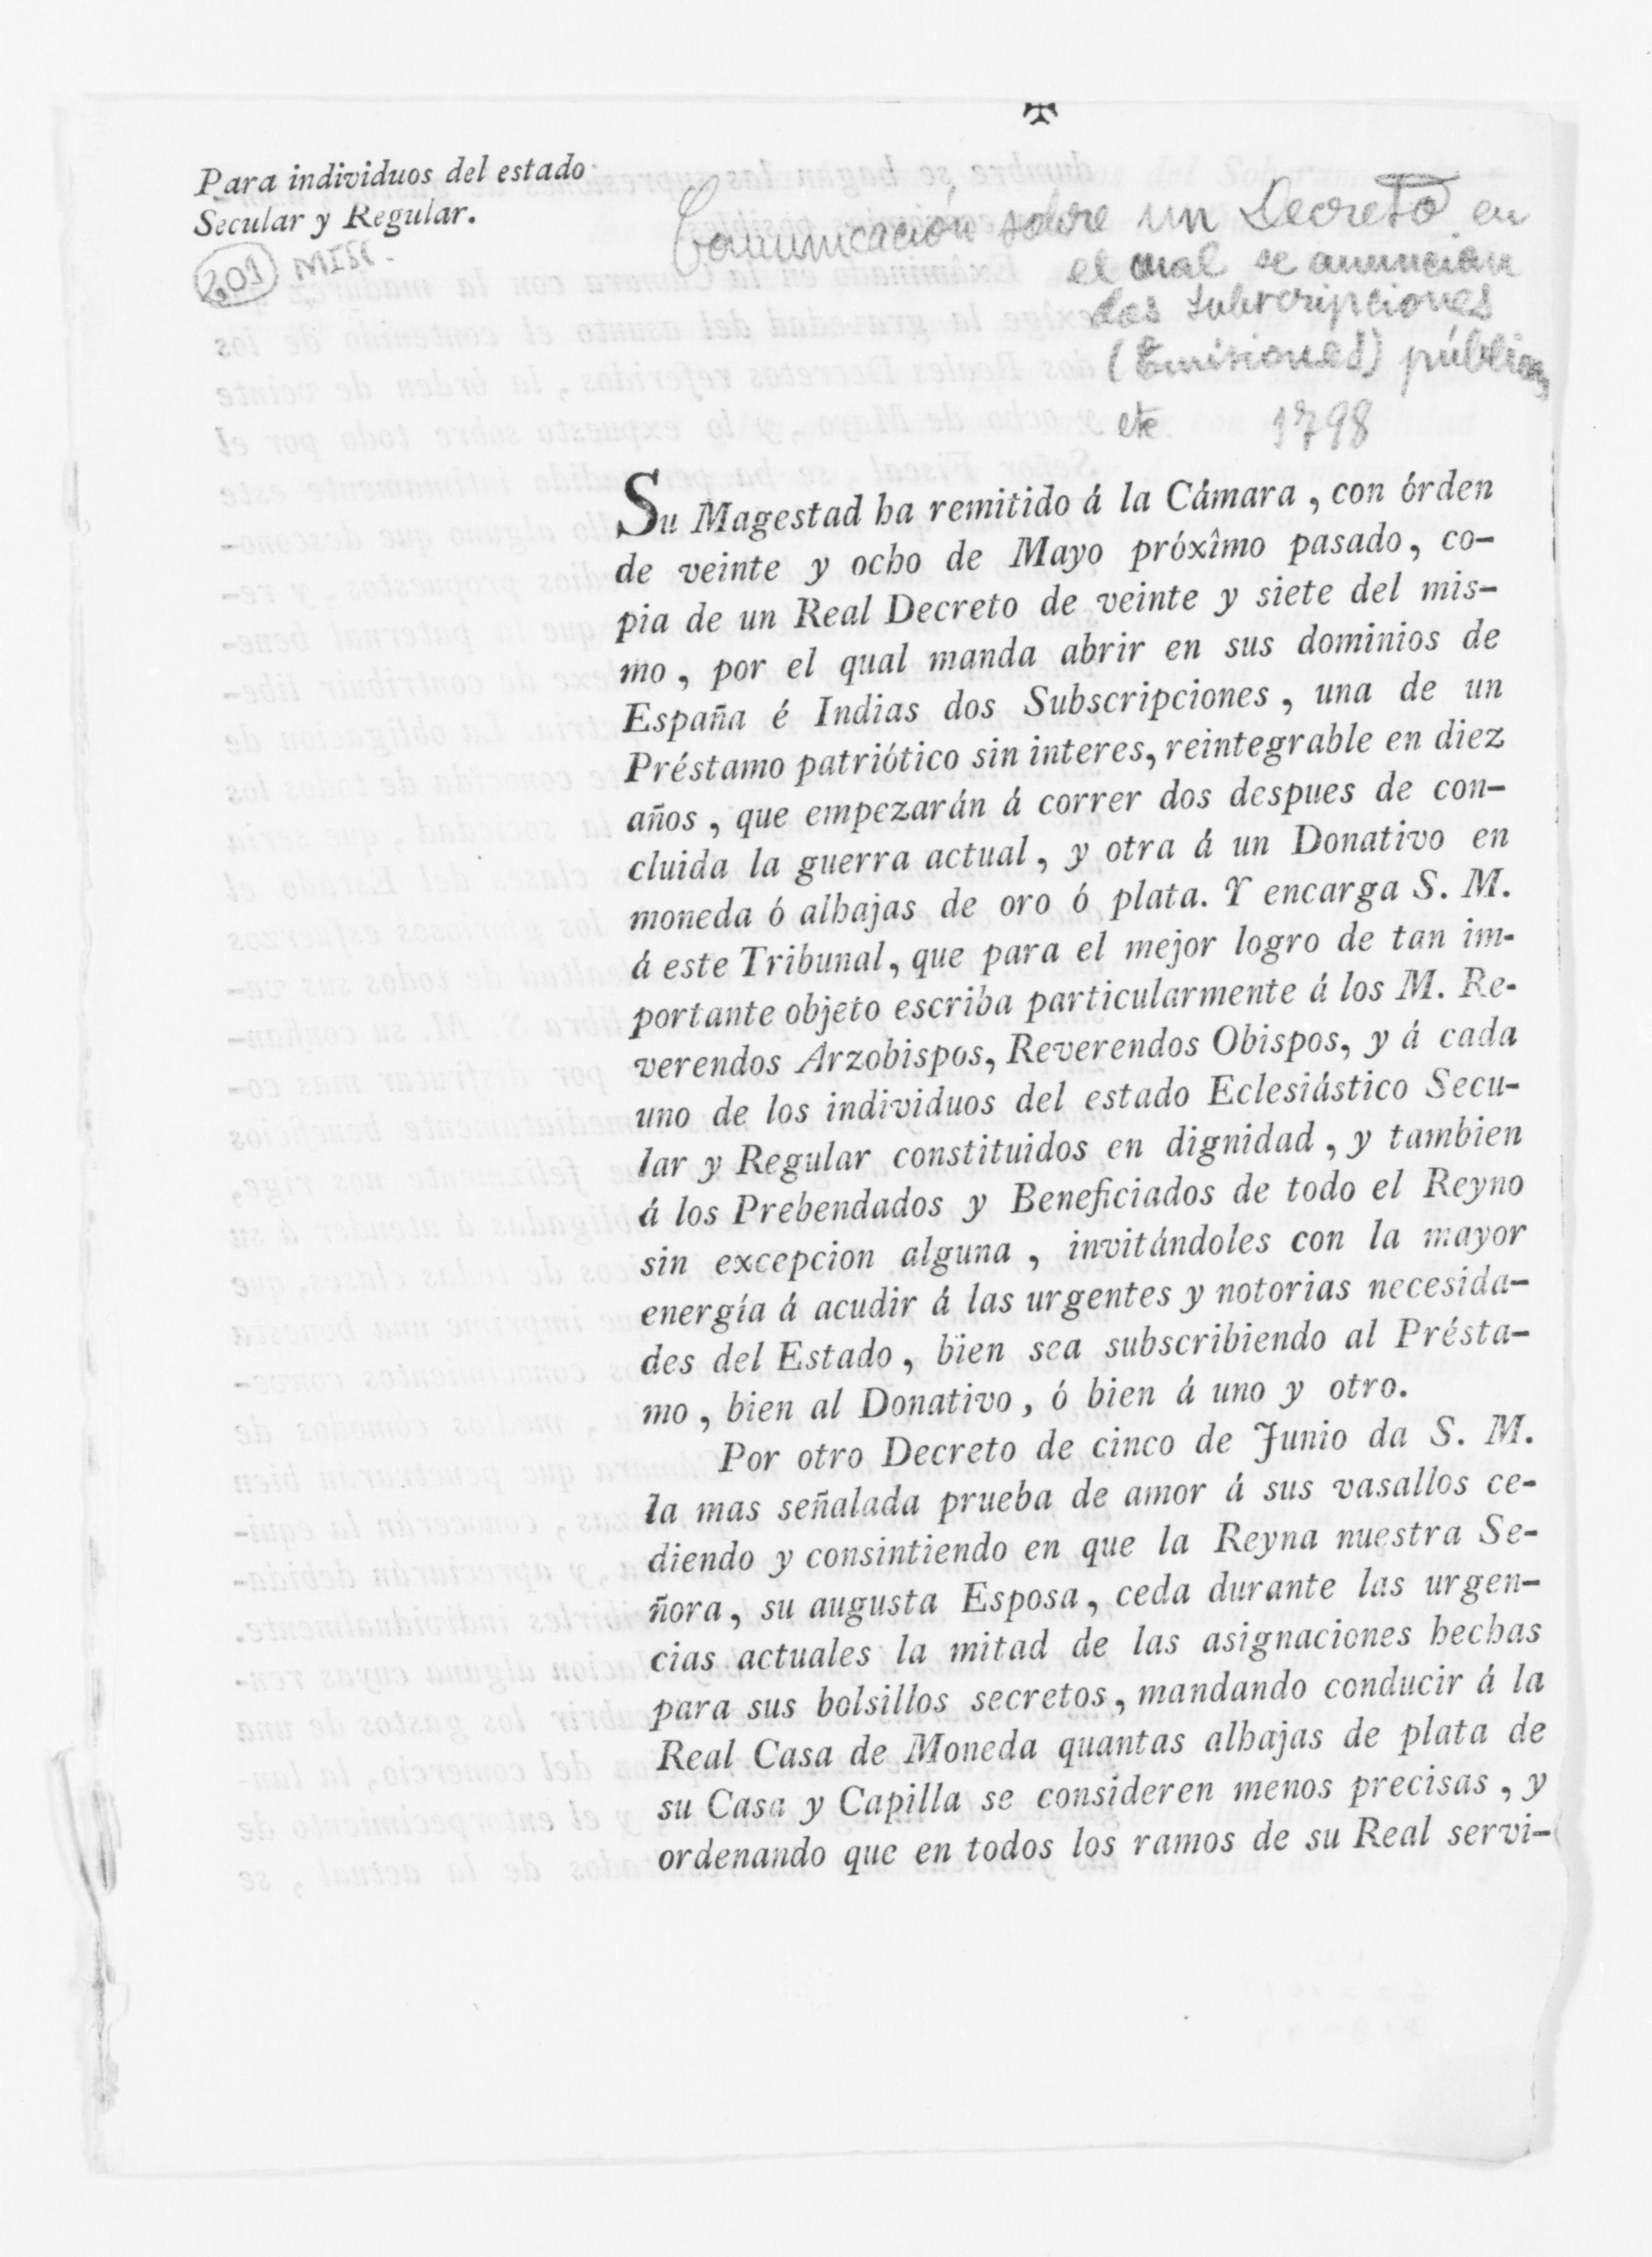 Para individuos del estado
Secular y Regular.
201 MISC.
Comunicación sobre un Decreto en
el cual se anuncian
dos subscripciones
(Emisiones) públicas
etc. 1798
Su Magestad ha remitido á la Cámara , con órden
de veinte y ocho de Mayo próxîmo pasado, co-
pia de un Real Decreto de veinte y siete del mis-
mo , por el qual manda abrir en sus dominios de
España é Indias dos Subscripciones , una de un
Préstamo patriótico sin interes, reintegrable en diez
años , que empezarán á correr dos despues de con-
cluida la guerra actual , y otra á un Donativo en
moneda ó alhajas de oro ó plata. Y encarga S. M.
á este Tribunal, que para el mejor logro de tan im-
portante objeto escriba particularmente á los M. Re-
verendos Arzobispos, Reverendos Obispos, y á cada
uno de los individuos del estado Eclesiástico Secu-
lar y Regular constituidos en dignidad , y tambien
á los Prebendados y Beneficiados de todo el Reyno
sin excepcion alguna , invitándoles con la mayor
energía á acudir á las urgentes y notorias necesida-
des del Estado , bien sea subscribiendo al Présta-
mo , bien al Donativo , ó bien á uno y otro.
Por otro Decreto de cinco de Junio da S. M.
la mas señalada prueba de amor á sus vasallos ce-
diendo y consintiendo en que la Reyna nuestra Se-
ñora, su augusta Esposa, ceda durante las urgen-
cias actuales la mitad de las asignaciones hechas
para sus bolsillos secretos, mandando conducir á la
Real Casa de Moneda quantas alhajas de plata de
su Casa y Capilla se consideren menos precisas , y
ordenando que en todos los ramos de su Real servi-